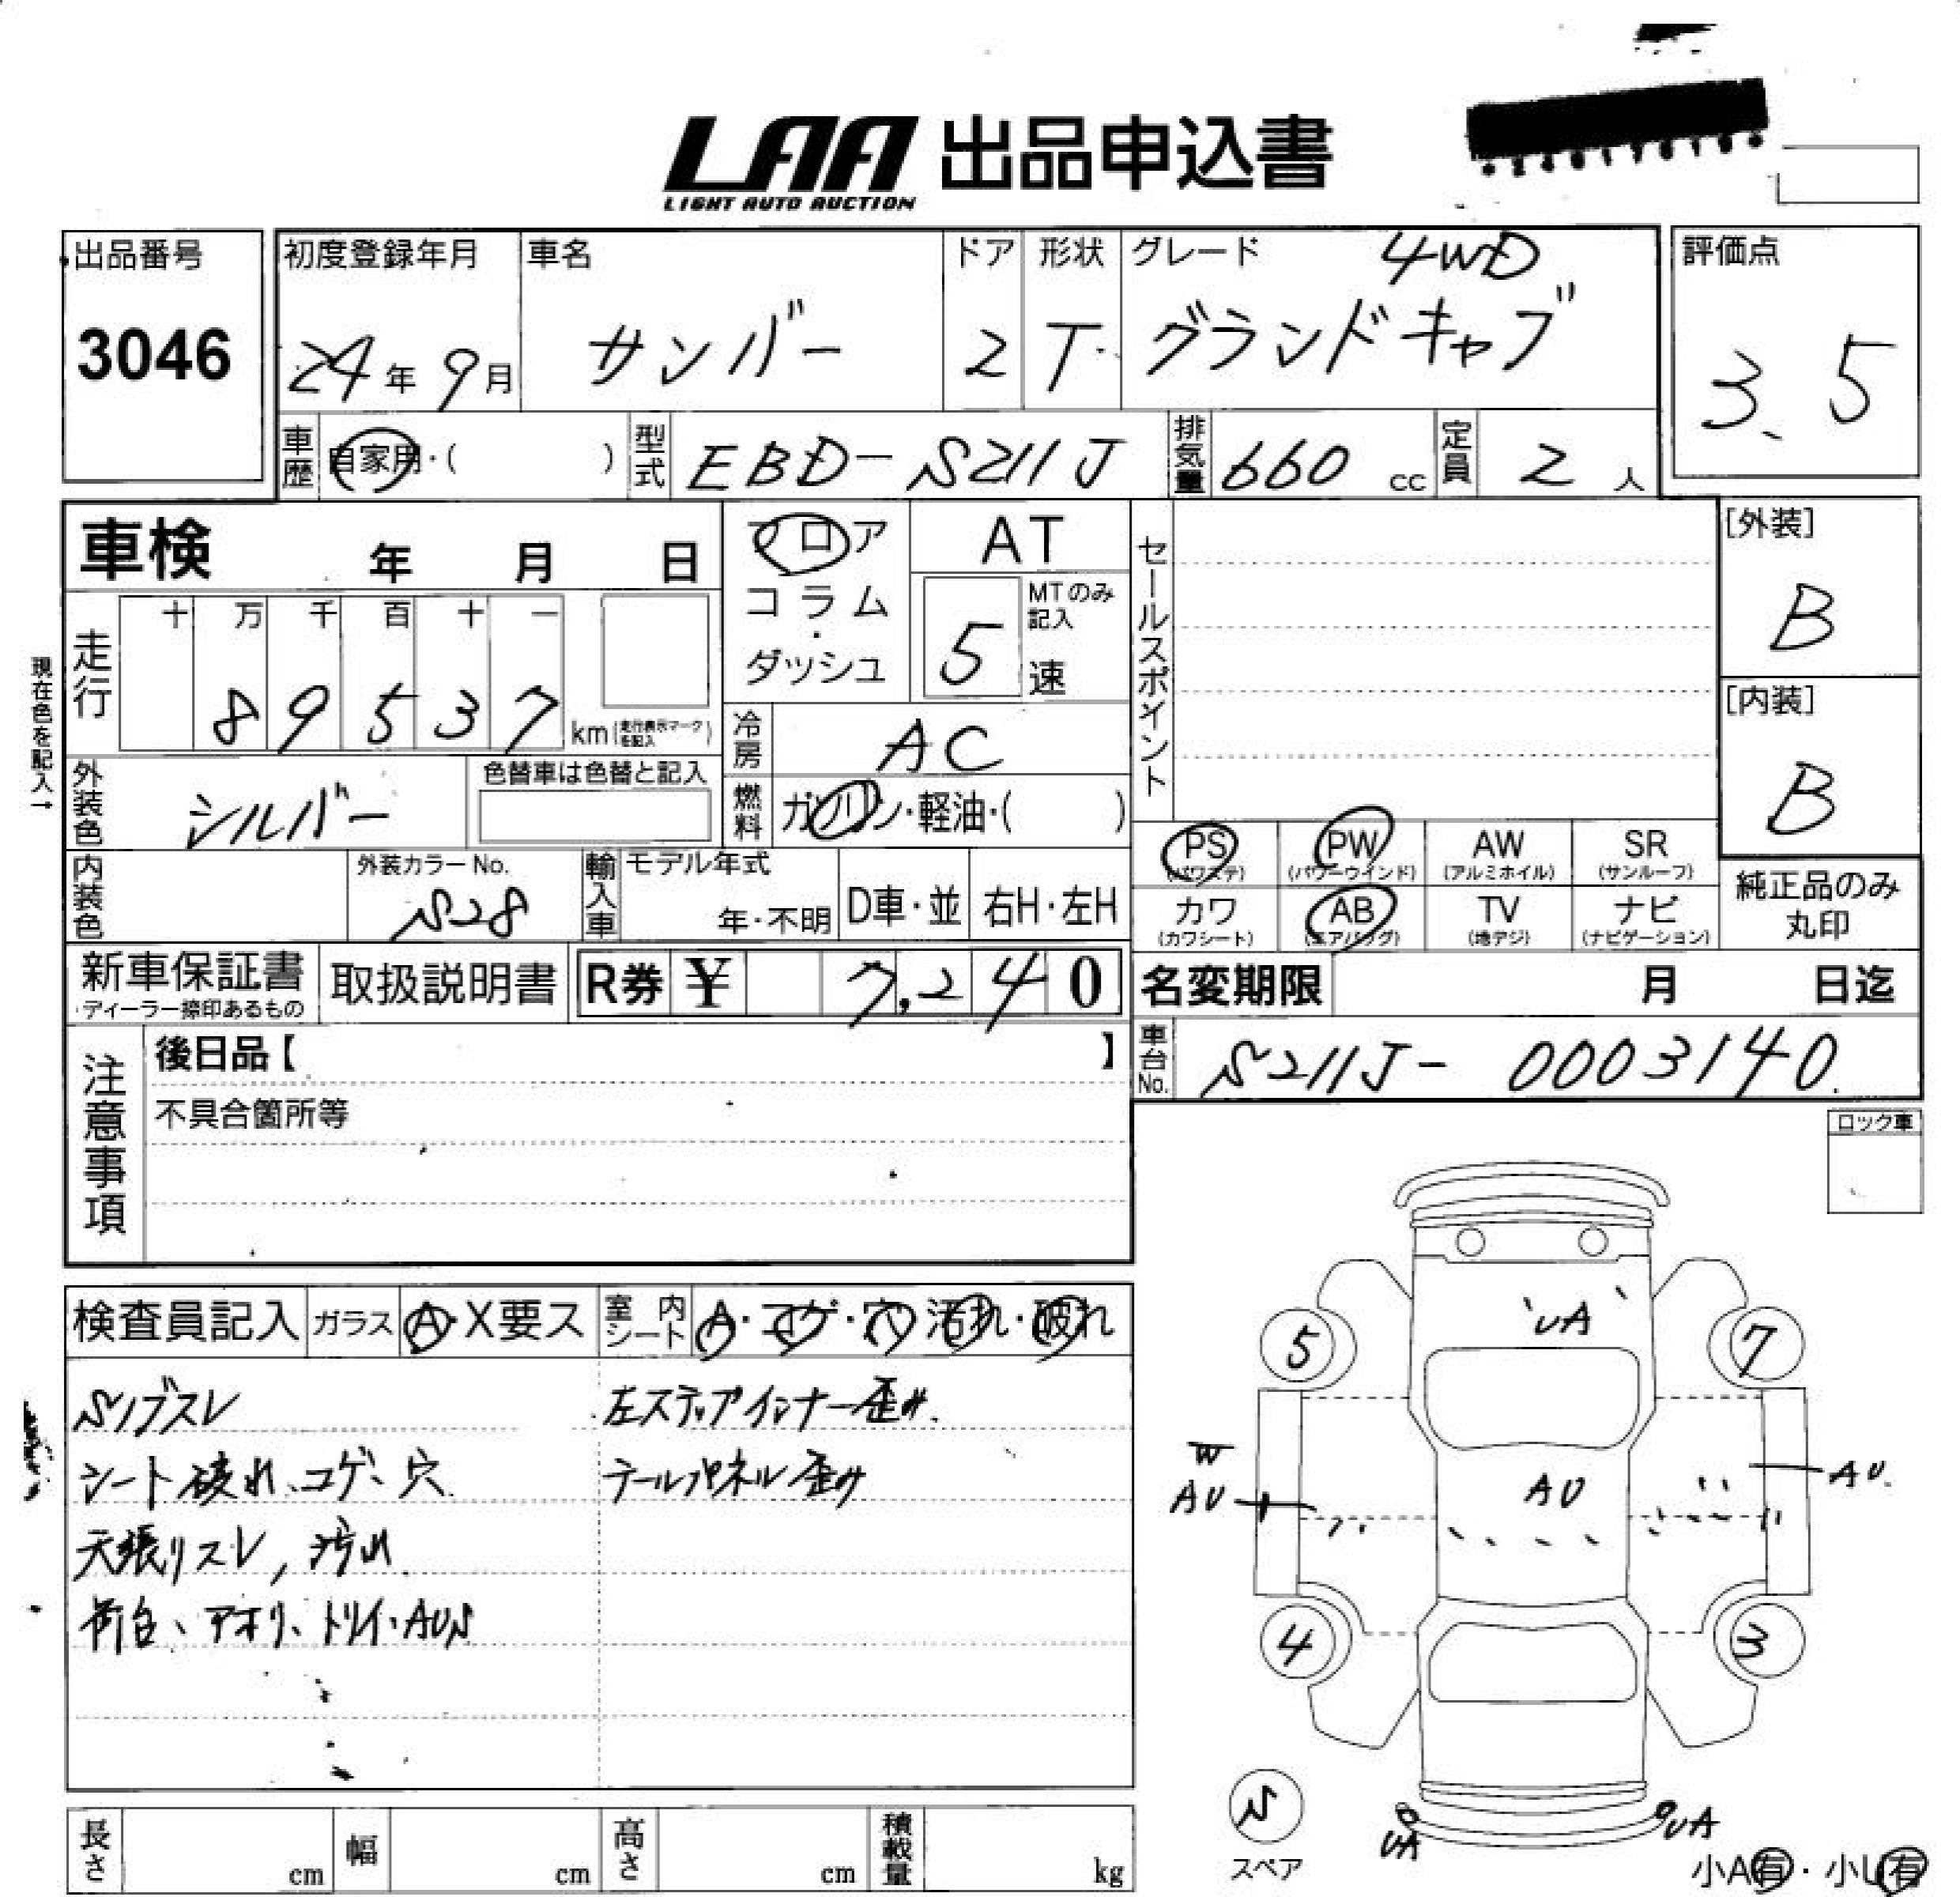 LAA 出品申込書
LIGHT AUTO AUCTION
出品番号
3046
初度登録年月
24年9月
車名
サンバー
ドア
2
形状
T
グレード
4WD
グランドキャブ
評価点
3.5
車歴 自家用・( )
型式 EBD-S211J
排気量 660 cc
定員 2 人
車検 年 月 日
フロア
コラム
・
ダッシュ
AT
MTのみ記入
5 速
セールスポイント
[外装]
B
[内装]
B
現在色を記入→
走行
十 万 千 百 十 一
8 9 5 3 7 km (走行表示マークを記入)
冷房 AC
外装色 シルバー
色替車は色替と記入
燃料 ガソリン・軽油・( )
内装色
外装カラーNo.
S28
輸入車
モデル年式
年・不明
D車・並
右H・左H
PS (パワステ)
PW (パワーウインド)
AW (アルミホイル)
SR (サンルーフ)
カワ (カワシート)
AB (エアバッグ)
TV (地デジ)
ナビ (ナビゲーション)
純正品のみ
丸印
新車保証書
ディーラー捺印あるもの
取扱説明書
R券 ¥ 7,240
名変期限 月 日迄
車台No. S211J-0003140
注意事項
後日品【 】
不具合箇所等
ロック車
検査員記入
ガラス A・X要ス
室内シート A・コゲ・穴・汚れ・破れ
Sノブスレ
シート破れ、コゲ、穴
天張リスレ,汚れ
荷台、アオリ、トリイ・AUS
左ステップインナー歪み
テールパネル歪み
UA
5
7
W
AU
AU
AU
4
3
S
スペア
UA
UA
小A有・小U有
長さ cm
幅 cm
高さ cm
積載量 kg